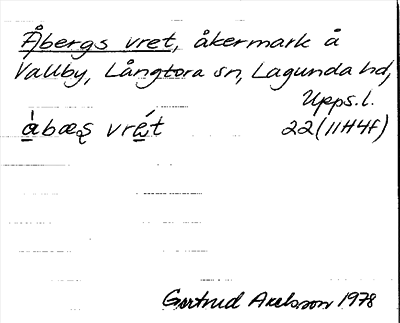 Åbergs vret, åkermark å
Vallby, Långtora sn, Lagunda hd,
Upps.l.
åbæș vrét 22(11H4f)
Gertrud Axelsson 1978